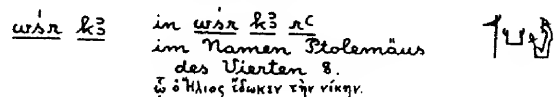 wśr kꜣ in wśr kꜣ rꜥ
im Namen Ptolemäus
des Vierten 8.
ᾧ ὁ Ἥλιος ἔδωκεν τὴν νίκην.